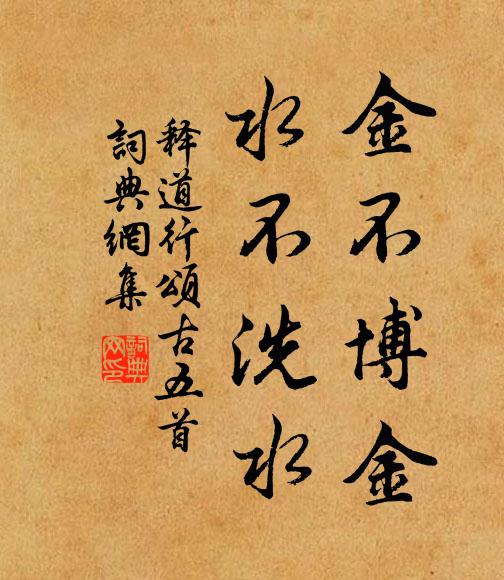 金不博金
水不洗水
释道行頌古五首
詞典網集
詞典
网印